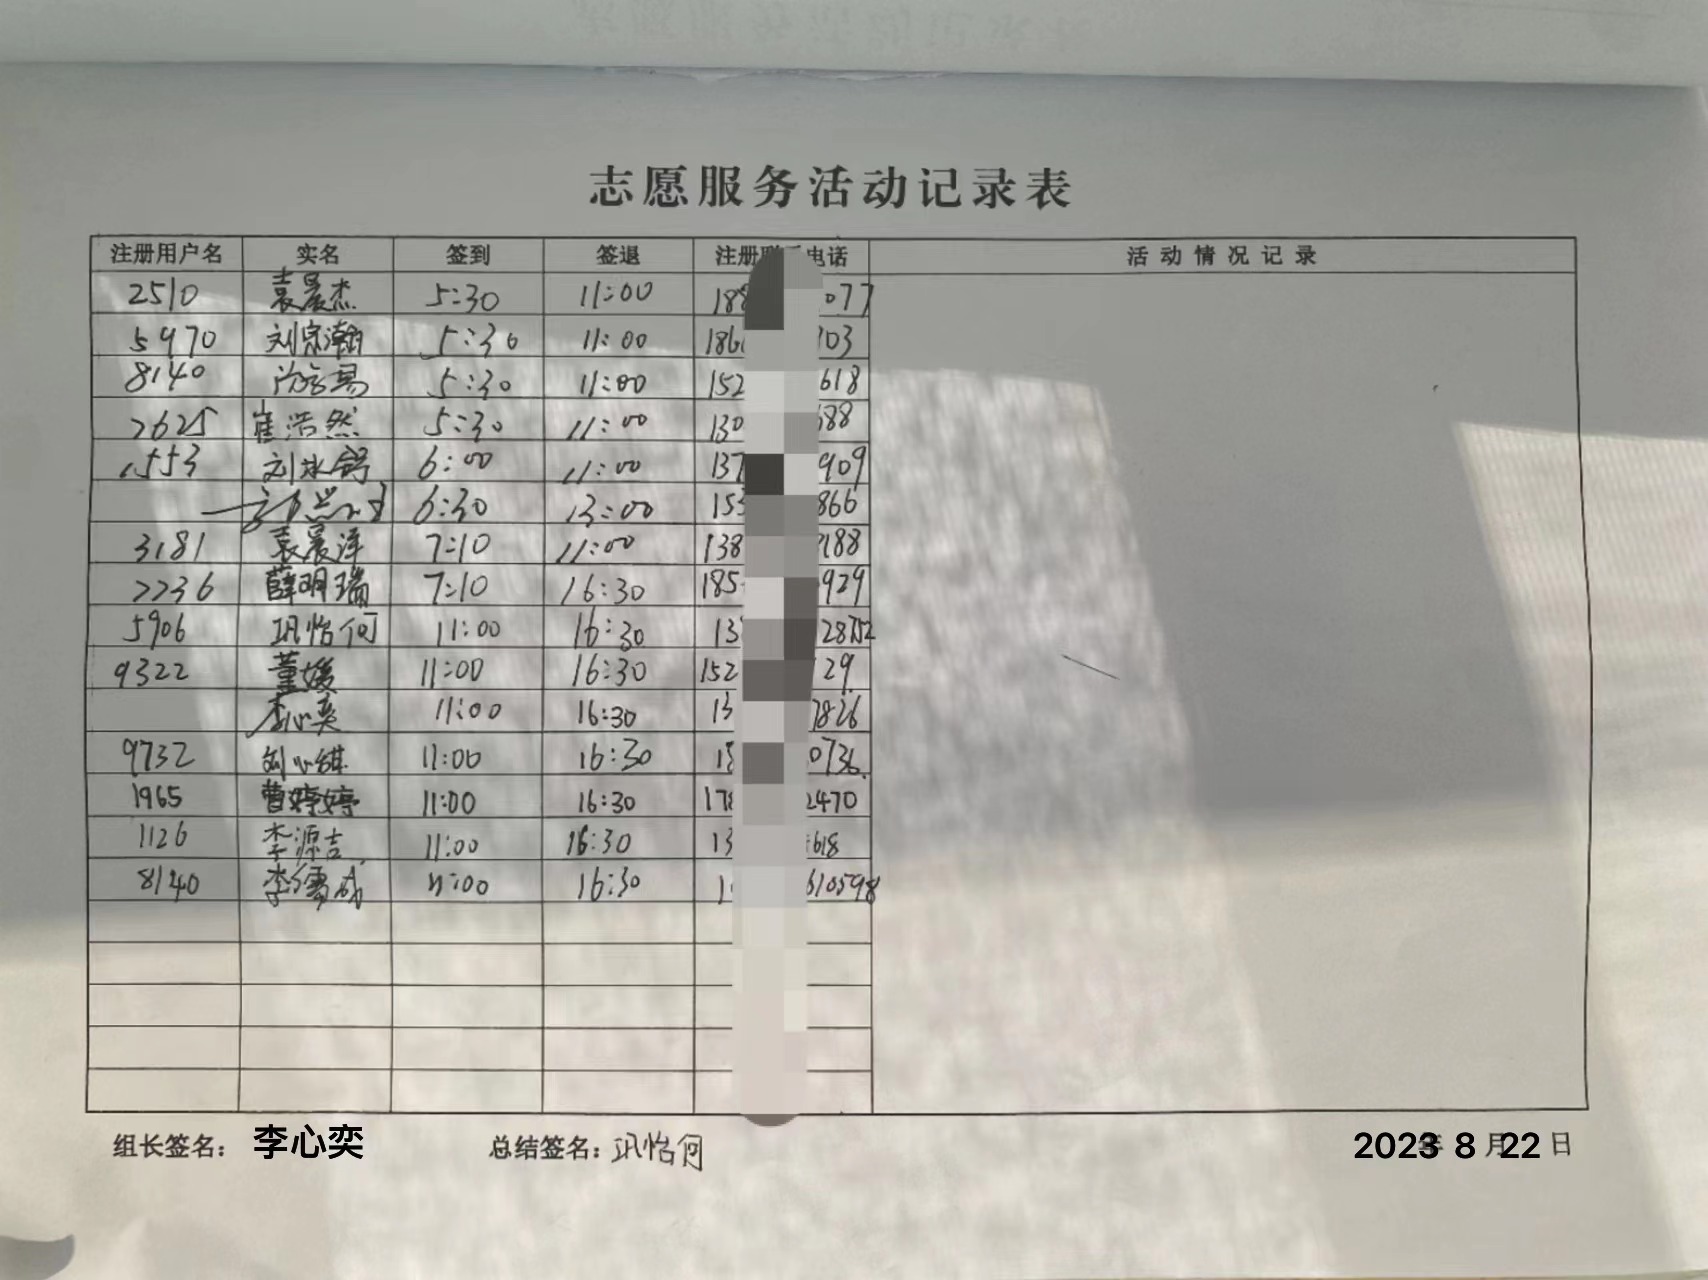 志愿服务活动记录表
注册用户名 实名 签到 签退 注册联系电话 活动情况记录
2510 袁晨杰 5:30 11:00 188 077
5970 刘宗瀚 5:30 11:00 186 03
8140 5:30 11:00 152 618
2625 崔浩然 5:30 11:00 130 688
1553 刘冰 6:00 11:00 137 909
6:30 13:00 155 866
3181 袁晨泽 7:10 11:00 138 188
2236 薛明瑞 7:10 16:30 185 929
5906 巩怡何 11:00 16:30 13 28752
9322 董媛 11:00 16:30 152 29
李心奕 11:00 16:30 13 7826
9732 刘心祺 11:00 16:30 18 0736
1965 曹婷婷 11:00 16:30 178 2470
1126 李源吉 11:00 16:30 13 618
8140 李儒成 11:00 16:30 1 610598
组长签名: 李心奕 总结签名: 巩怡何 2023年8月22日